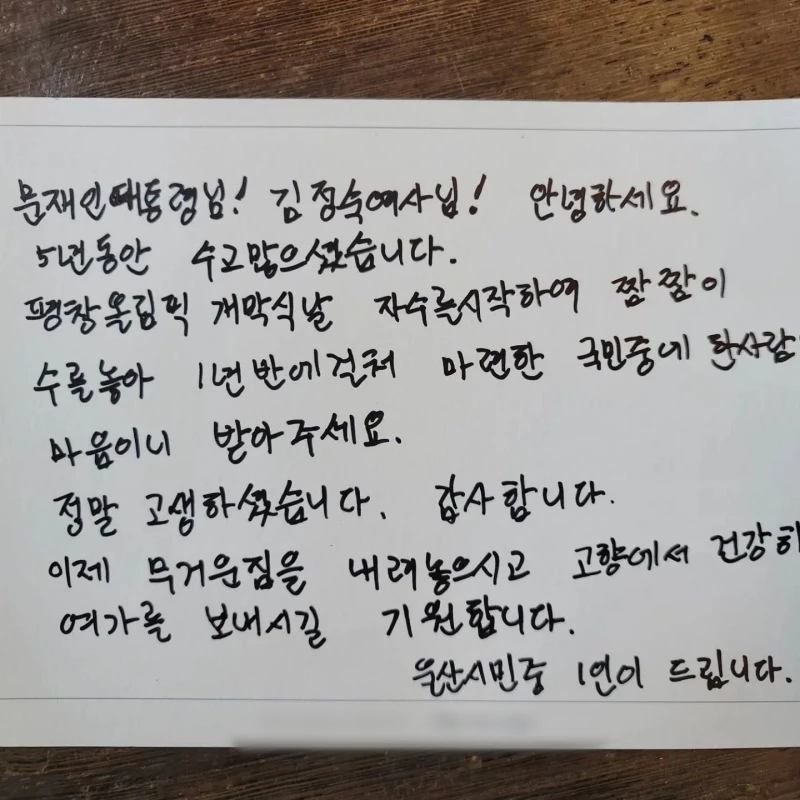 문재인대통령님! 김정숙여사님! 안녕하세요.
5년동안 수고많으셨습니다.
평창올림픽 개막식날 자수를시작하여 짬짬이
수를놓아 1년반에걸쳐 마련한 국민중에 한사람
마음이니 받아주세요.
정말 고생하셨습니다. 감사합니다.
이제 무거운짐을 내려놓으시고 고향에서 건강히
여가를 보내시길 기원합니다.
울산시민중 1인이 드립니다.